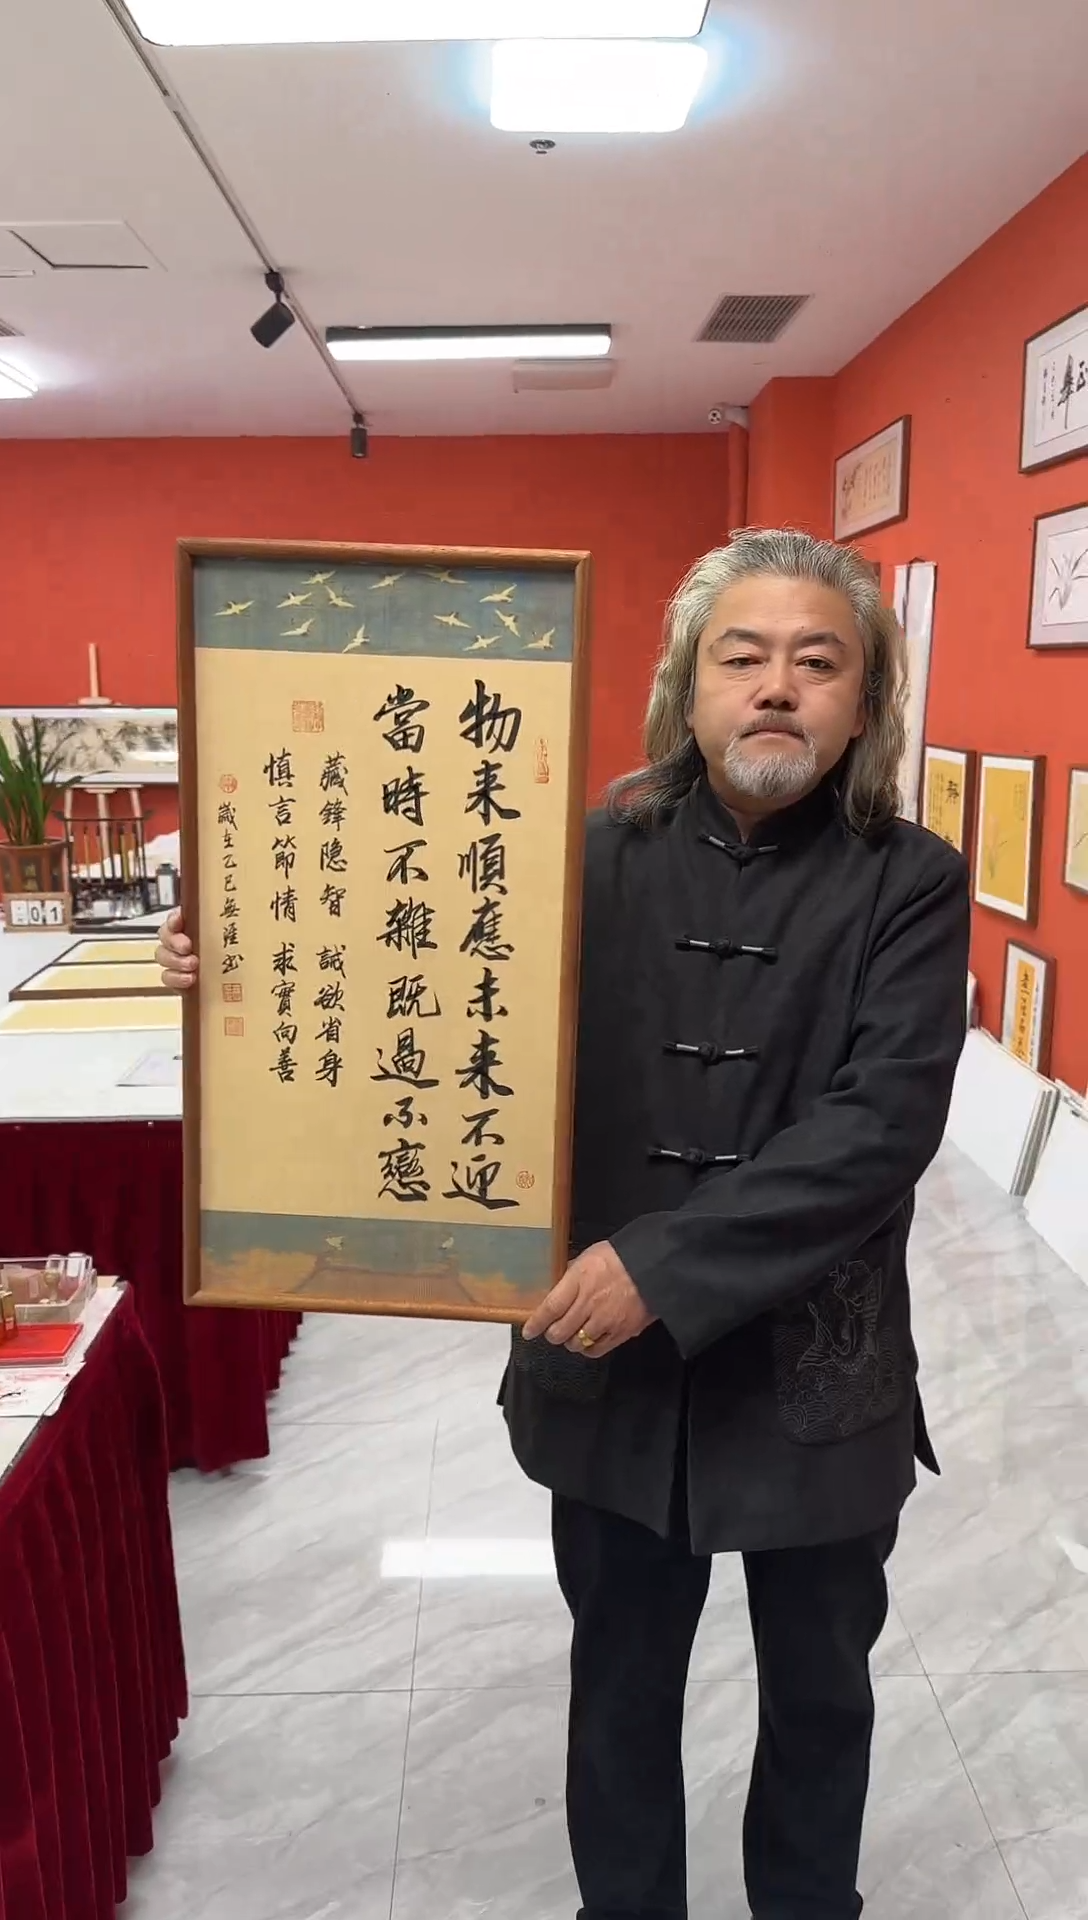 物来順應未来不迎
當時不雜既過不戀
藏鋒隐智 誠欲省身
慎言節情 求實向善
歲在乙巳無涯书
01